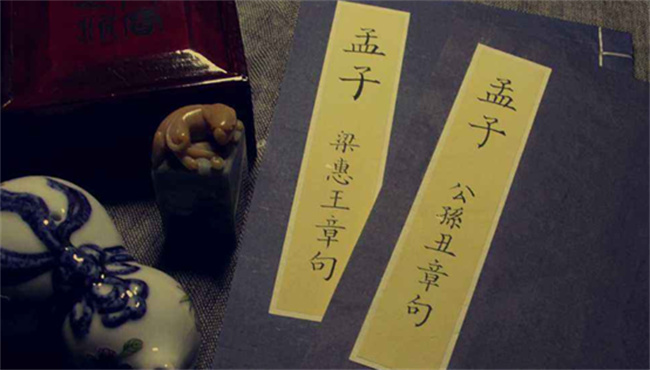 孟子
梁惠王章句
孟子
公孫丑章句